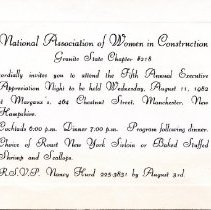 National Association of Women in Construction
Granite State Chapter #218
cordially invites you to attend the Fifth Annual Executive
Appreciation Night to be held Wednesday, August 11, 1982
at Margaux's, 464 Chestnut Street, Manchester, New
Hampshire.
Cocktails 6:00 p.m. Dinner 7:00 p.m. Program following dinner.
Choice of Roast New York Sirloin or Baked Stuffed
Shrimp and Scallops.
R.S.V.P. Nancy Hurd 225-3831 by August 3rd.